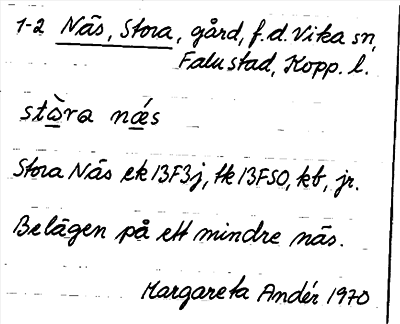 1-2 Näs, Stora, gård, f.d. Vika sn,
Falu stad, Kopp. l.
stò̱ra nǽ̱s
Stora Näs ek 13F3j, tk 13FSO, kb, jr.
Belägen på ett mindre näs.
Margareta Andér 1970